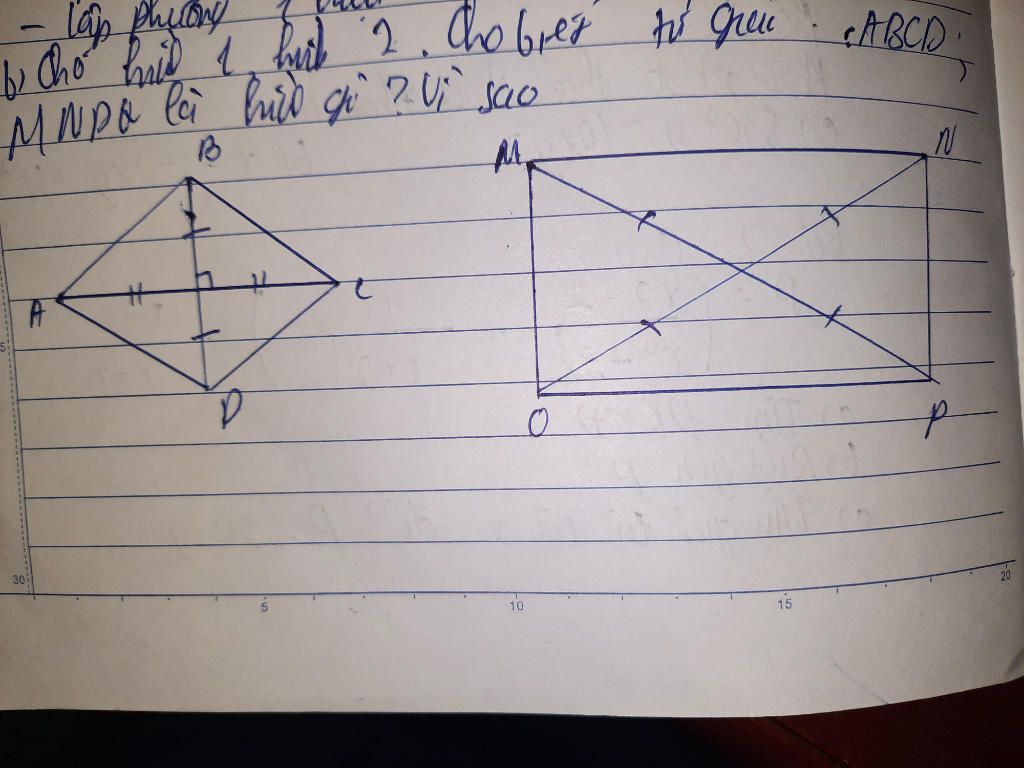 - lập phương
b, Cho hình 1 hình 2. Cho biết tứ giác ABCD,
MNPQ là hình gì? Vì sao
B
A
C
D
M
N
Q
P
5
30
5
10
15
20